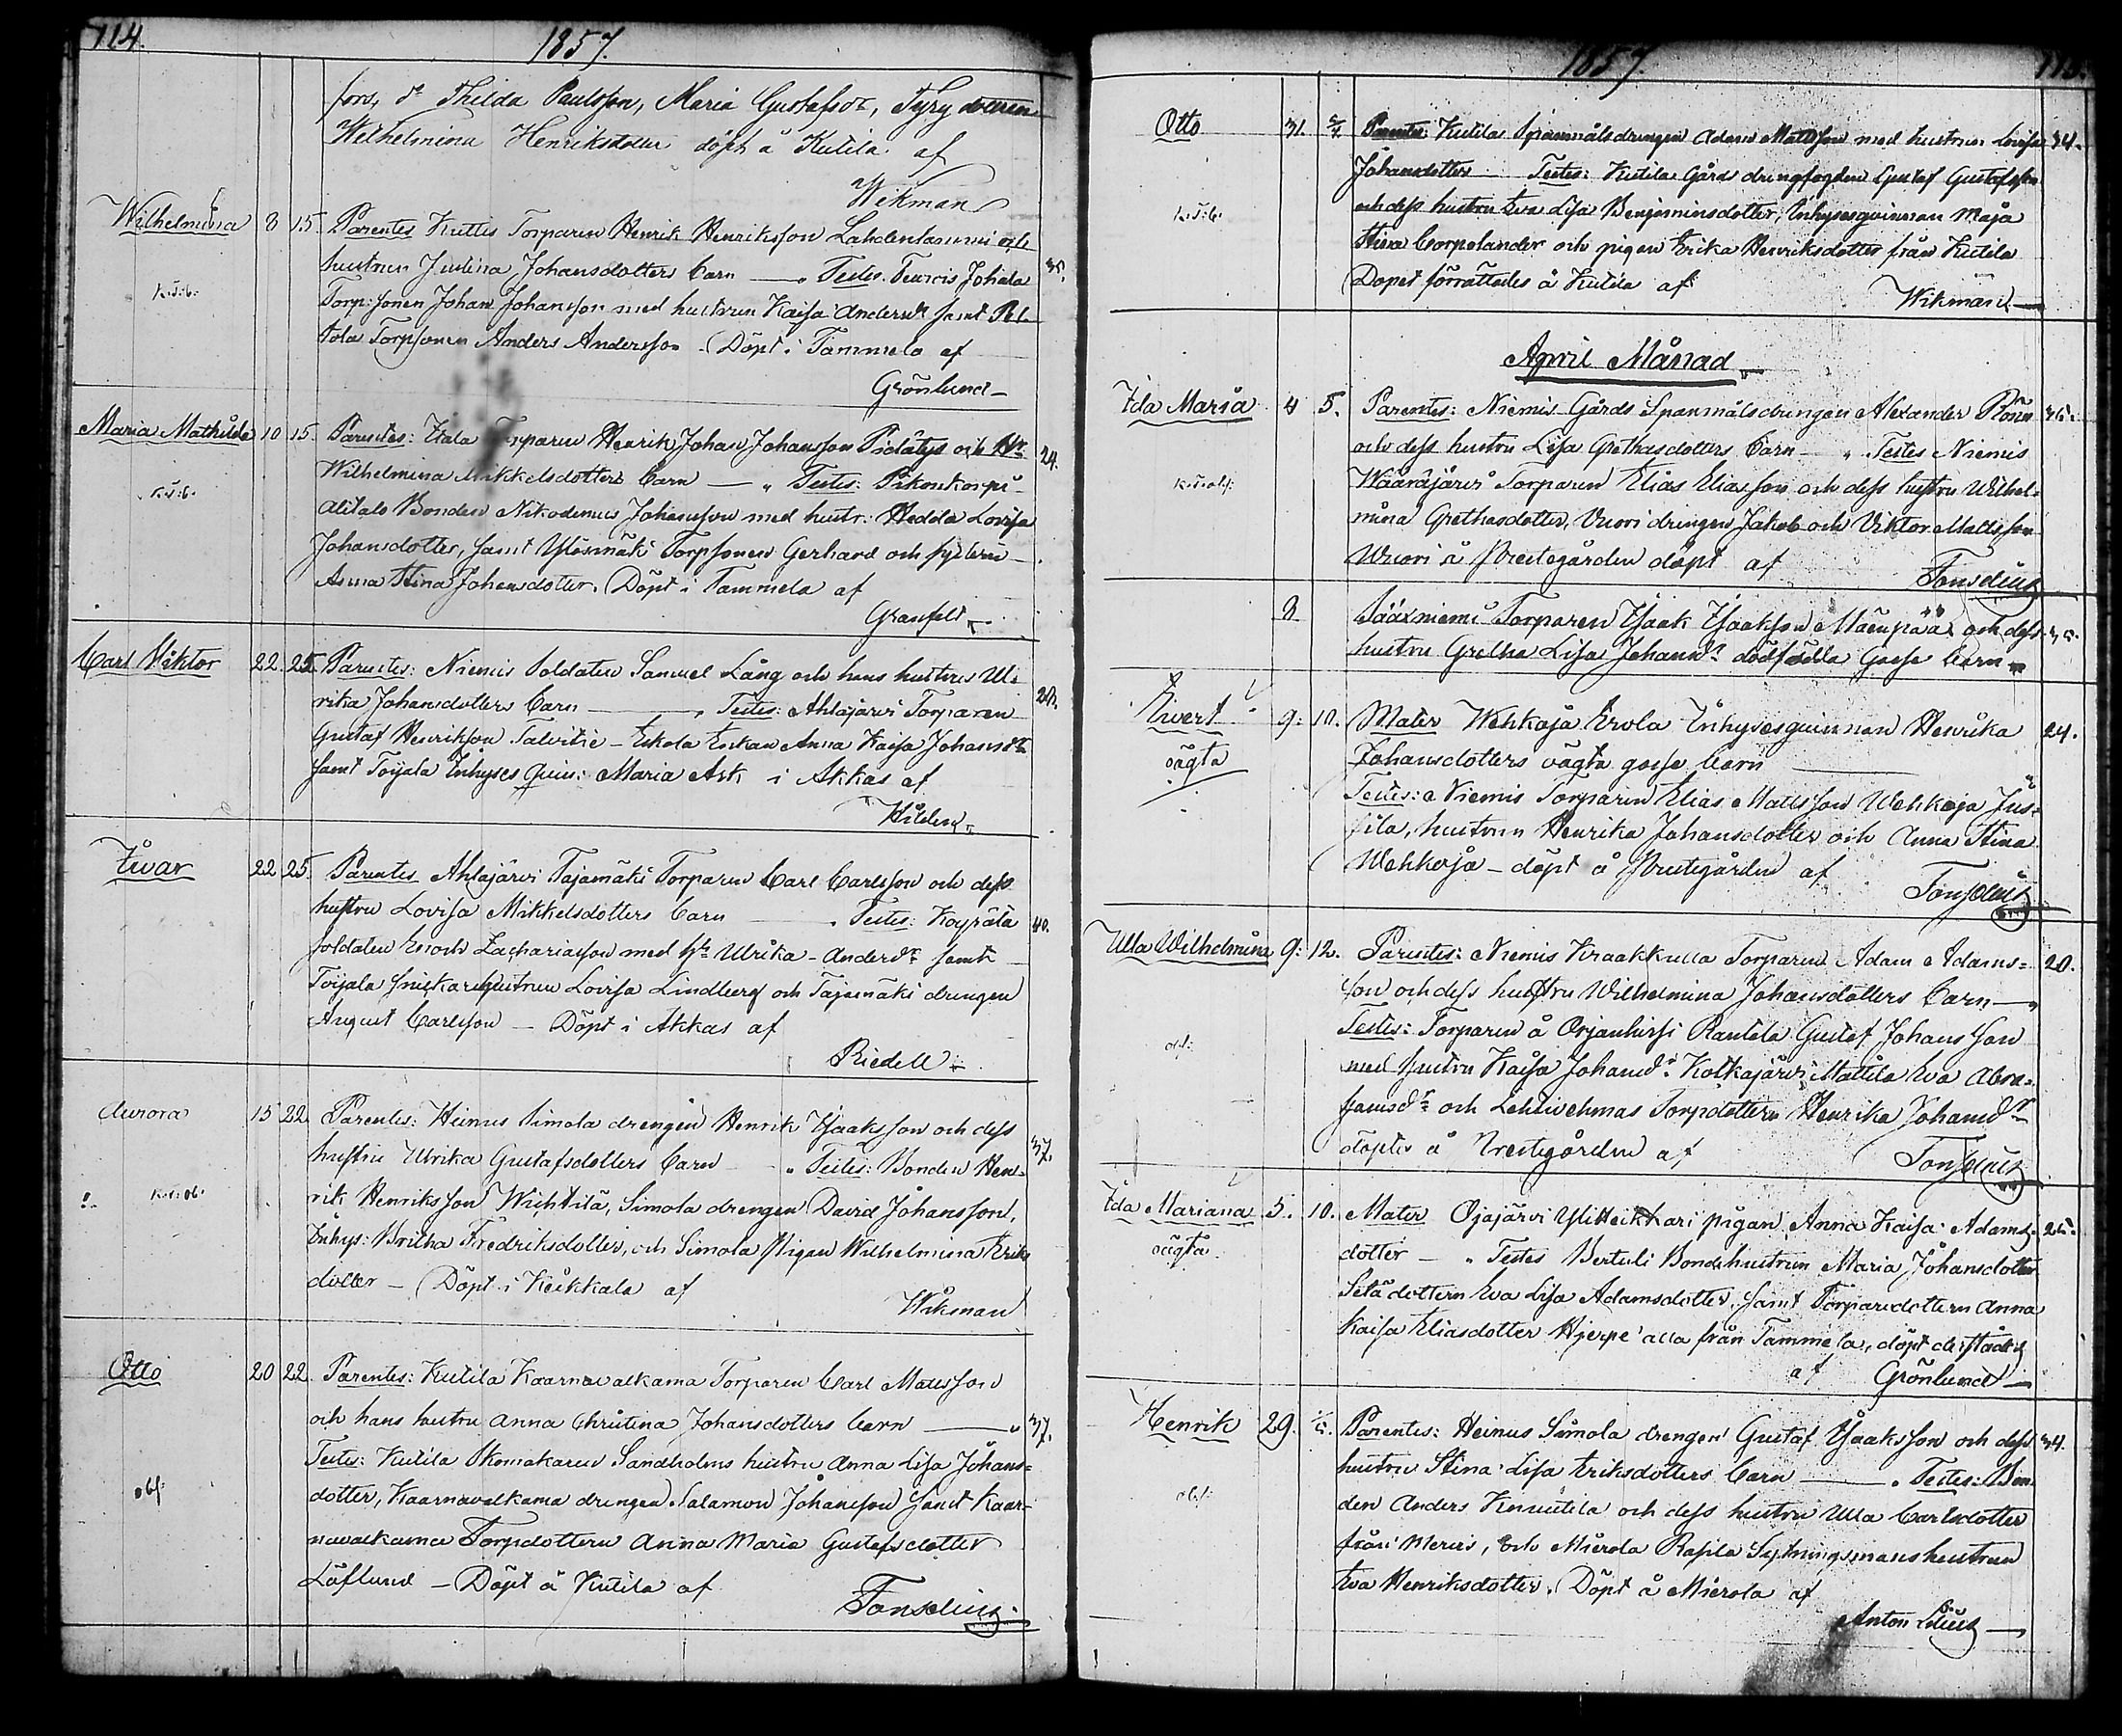 114.
1857.
fors, dr Thilda Paulsson, Maria Gustafsdr, dottren
Wilhelmina Henriksdotter döpt å Kutila af
Wikman
Wilhelmina 8 15. Parentes Kuttis Torparen Henrik Henriksson Lahdenlammi och
hustrun Justina Johansdotters barn — Testes Johala 35.
Torp:sonen Johan Johansson med hustrun Kaisa Andersdr samt
tola Torpsonen Anders Andersson. Döpt i Tammela af
Grönlund
Maria Mathilda 10 15. Parentes: Torparen Henrik Johan Johansson Pidätys och Hr 24.
Wilhelmina Mikkelsdotters barn — " Testes:
Alitalo Bonden Nikodemus Johansson med hustr: Hedda Lovisa
Johansdotter, samt Ylösmäki Torpsonen Gerhard och
Anna Stina Johansdotter. Döpt i Tammela af
Granfelt
Carl Viktor 22. 25. Parentes: Niemis Soldaten Samuel Lång och hans hustrus Ul-
rika Johansdotters barn — Testes: Ahlajärvi Torparen
Gustaf Henriksson Talvitie — Eskola Enkan Anna Kaisa Johansdr
samt Toijala Inhyses Quin: Maria Ask i Akkas af
Hilden
Ivar 22 25. Parentes Ahlajärvi Tajamäki Torparen Carl Carlsson och dess
hustru Lovisa Mikkelsdotters barn — Testes: Koyrälä 40.
soldaten Enoch Zachariasson med hr Ulrika Andersdr samt
Toijala snickarehustrun Lovisa Lindberg och Tajamäki drengen
August Carlsson — Döpt i Akkas af
Riedell
Aurora 15 22. Parentes: Heinus Simola drengen Henrik Isaksson och dess
hustru Ulrika Gustafsdotters barn " Testes: Bonden Hen- 37.
rik Henriksson Wichtilä, Simola drengen David Johansson,
Inhys: Britha Fredriksdotter, och Simola Pigan Wilhelmina Eriks
dotter — Döpt i Keikkala af
Wikman
Otto 20 22. Parentes: Kutila Kaarnavalkama Torparen Carl Mattsson
och hans hustru Anna Christina Johansdotters barn — 37.
obf: Testes: Kutila Skomakaren Sandholms hustru Anna Lisa Johans-
dotter, Kaarnavalkama drengen Salamon Johansson samt Kaar-
navalkama Torpdottern Anna Maria Gustafsdotter
Löflund — Döpt å Kutila af
Tonselius
1857.
115.
Otto 31. Parentes: Kutilas Spanmålsdrengen Adam Mattsson med hustrun Lovisa 34.
Johansdotter Testes: Kutila Gårds drengfogden Gustaf Gustafsson
och dess hustru Eva Lisa Benjaminsdotter, Inhysesquinnan Maja
Stina Corpolander och pigan Erika Henriksdotter från Kutila
Dopet förrättades å Kutila af
Wikman
April Månad
Ida Maria 4 5. Parentes: Niemis Gårds Spanmålsdrengen Alexander
och dess hustru Lisa Grethasdotters barn — " Testes Niemis
Wäärajärvi Torparen Elias Eliasson och dess hustru Wilhel-
mina Grethasdotter, Vuori drengen Jakob och Viktor Mattsson
Wuori å Prestegården döpt af
Tonselius
8 Sääxniemi Torparen Isaak Isaaksson Mäenpää och dess
hustru Gretha Lisa Johansdr dödfödda Gosse barn
Evert 9. 10. Mater Wehkaja Erola Inhysesquinnan Henrika 24.
oägta Johansdotters oägta gosse barn —
Testes: Niemis Torparen Elias Mattsson Wehkaja Jus-
sila, hustrun Henrika Johansdotter och Anna Stina
Wehkoja — döpt å Prestegården af
Tonselius
Ulla Wilhelmina 9. 12. Parentes: Niemis Kraakkulla Torparen Adam Adams- 20.
son och dess hustru Wilhelmina Johansdotters barn —
Testes: Torparen å Orjanhirsi Rantala Gustaf Johansson
med hustru Kaisa Johansdr Kotkajärvi Mattila Eva Abra-
hamsdr och Lehtivehmas Torpdottern Henrika Johansdr
döptes å Prestegården af
Tonselius
Ida Mariana 5. 10. Mater Ojajärvi pigan Anna Kaisa Adams-
oägta dotter — " Testes Bertuli Bondehustrun Maria Johansdotter
Setä dottern Eva Lisa Adamsdotter, samt Torparedottern Anna
Kaisa Eliasdotter Hjerpe alla från Tammela, döpt derstädes
af Grönlund
Henrik 29. Parentes: Heinus Simola drengen Gustaf Isaksson och dess 34.
hustru Stina Lisa Eriksdotters barn — Testes: Bon-
den Anders Knuutila och dess hustru Ulla Carlsdotter
från Mierois, och Mierola Rasila Sytningsmanshustrun
Eva Henriksdotter. Döpt å Mierola af
Anton Lilius